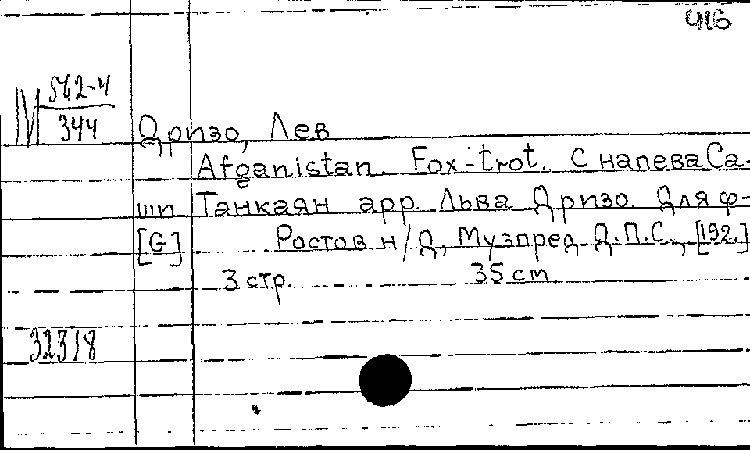 416
M 562-4
344
Дризо, Лев
Afganistan. Fox-trot. С напева Са-
шп Танкаян арр. Льва Дризо. Для ф-
[G] Ростов н/Д, Музпред Д.П.С., [192.]
3 стр. 35 cm
32318